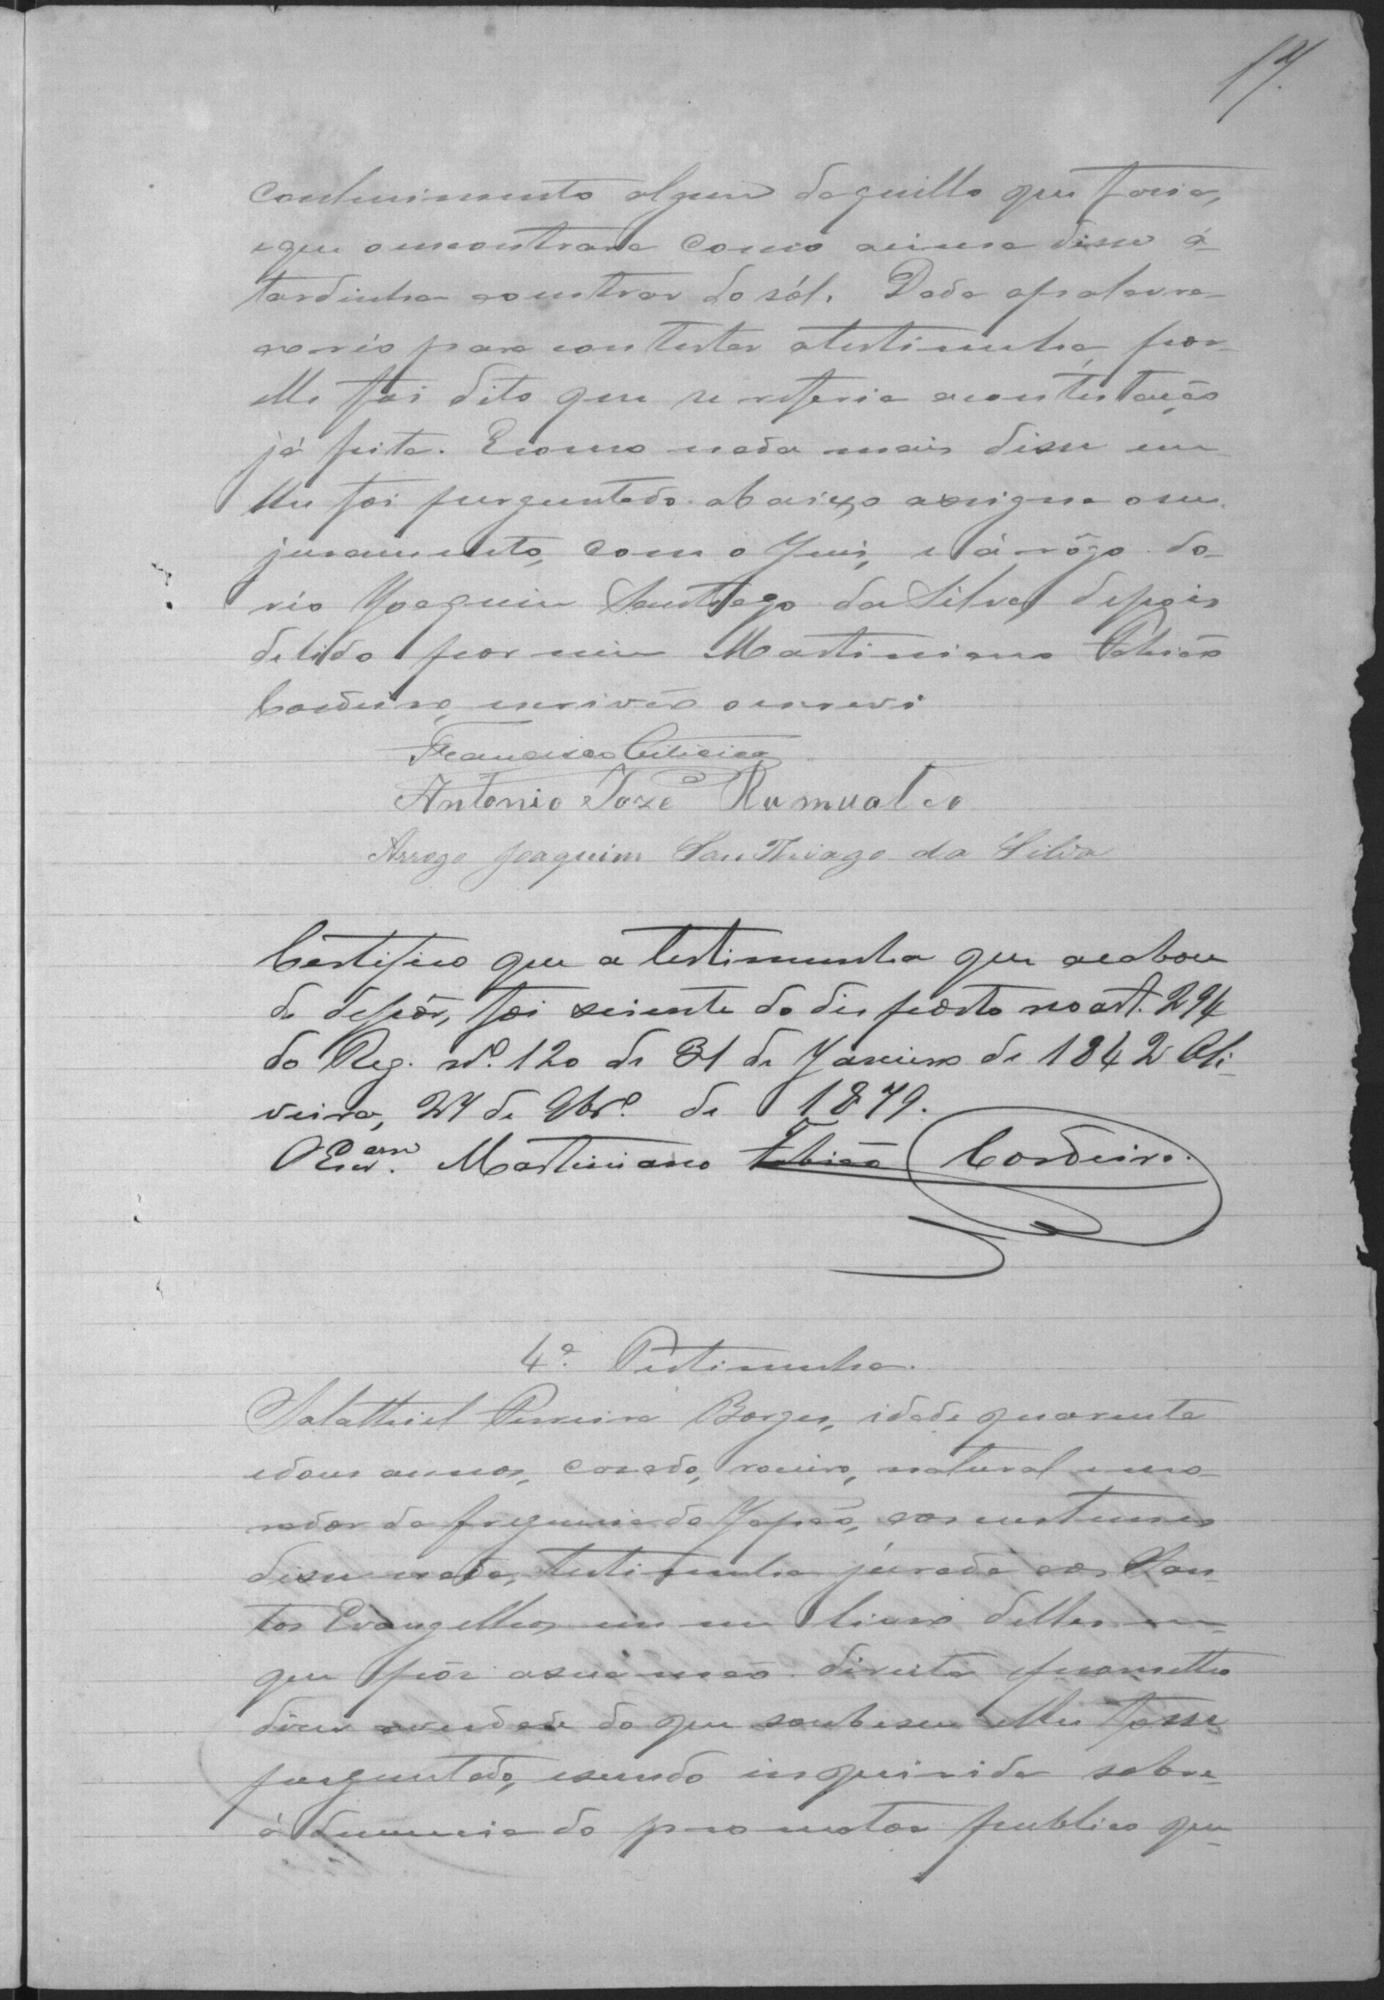 17.
conhecimento algum daquillo que fazia,
e que o encontrara como acima disse á
tardinha ao entrar do sól. Dada a palavra
ao réo para contestar a testimunha, por
elle foi dito que se referia a contestação
já feita. E como nada mais disse nem
lhe foi perguntado abaixo assigna o seu
juramento, com o Juiz, e á rôgo do
réo Joaquim Santiago da Silva, depois
de lido por mim Martiniano Fabião
Cordeiro, escrivão o escrevi
Francisco
Antonio Jozé Romualdo
Arrogo Joaquim San Thiago da Silva
Certifico que a testimunha que acabou
de depôr, foi sciente do disposto no art. 294
do Reg. nº. 120 de 31 de Janeiro de 1842 Oli-
veira, 27 de 9brº. de 1879.
O Escr.am Martiniano Fabião Cordeiro.
4ª. Testimunha.
Salathiel Ferreira Borges, idade quarenta
e dous annos, casado, roceiro, natural e mo-
rador da freguesia do Japão, aos costumes
disse nada, testimunha jurada aos San-
tos Evangelhos em um livro delles em
que pôz a sua mão direita e prometteu
dizer a verdade do que soubesse e lhe fosse
perguntado, e sendo inquirida sobre
á denuncia do promotor publico que